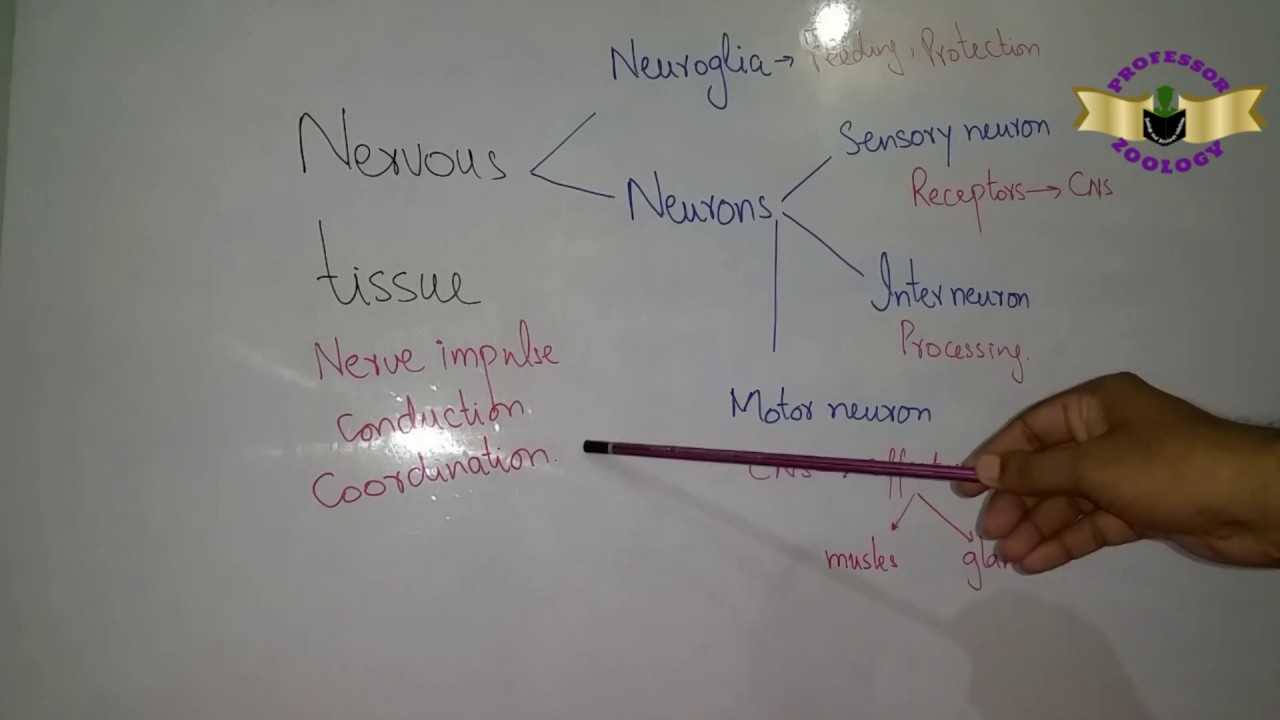 Neuroglia → Feeding, Protection
Nervous
tissue
Nerve impulse
Conduction
Coordination.
Neurons
Sensory neuron
Receptors → CNS
Interneuron
Processing.
Motor neuron
CNS
musles
PROFESSOR
ZOOLOGY